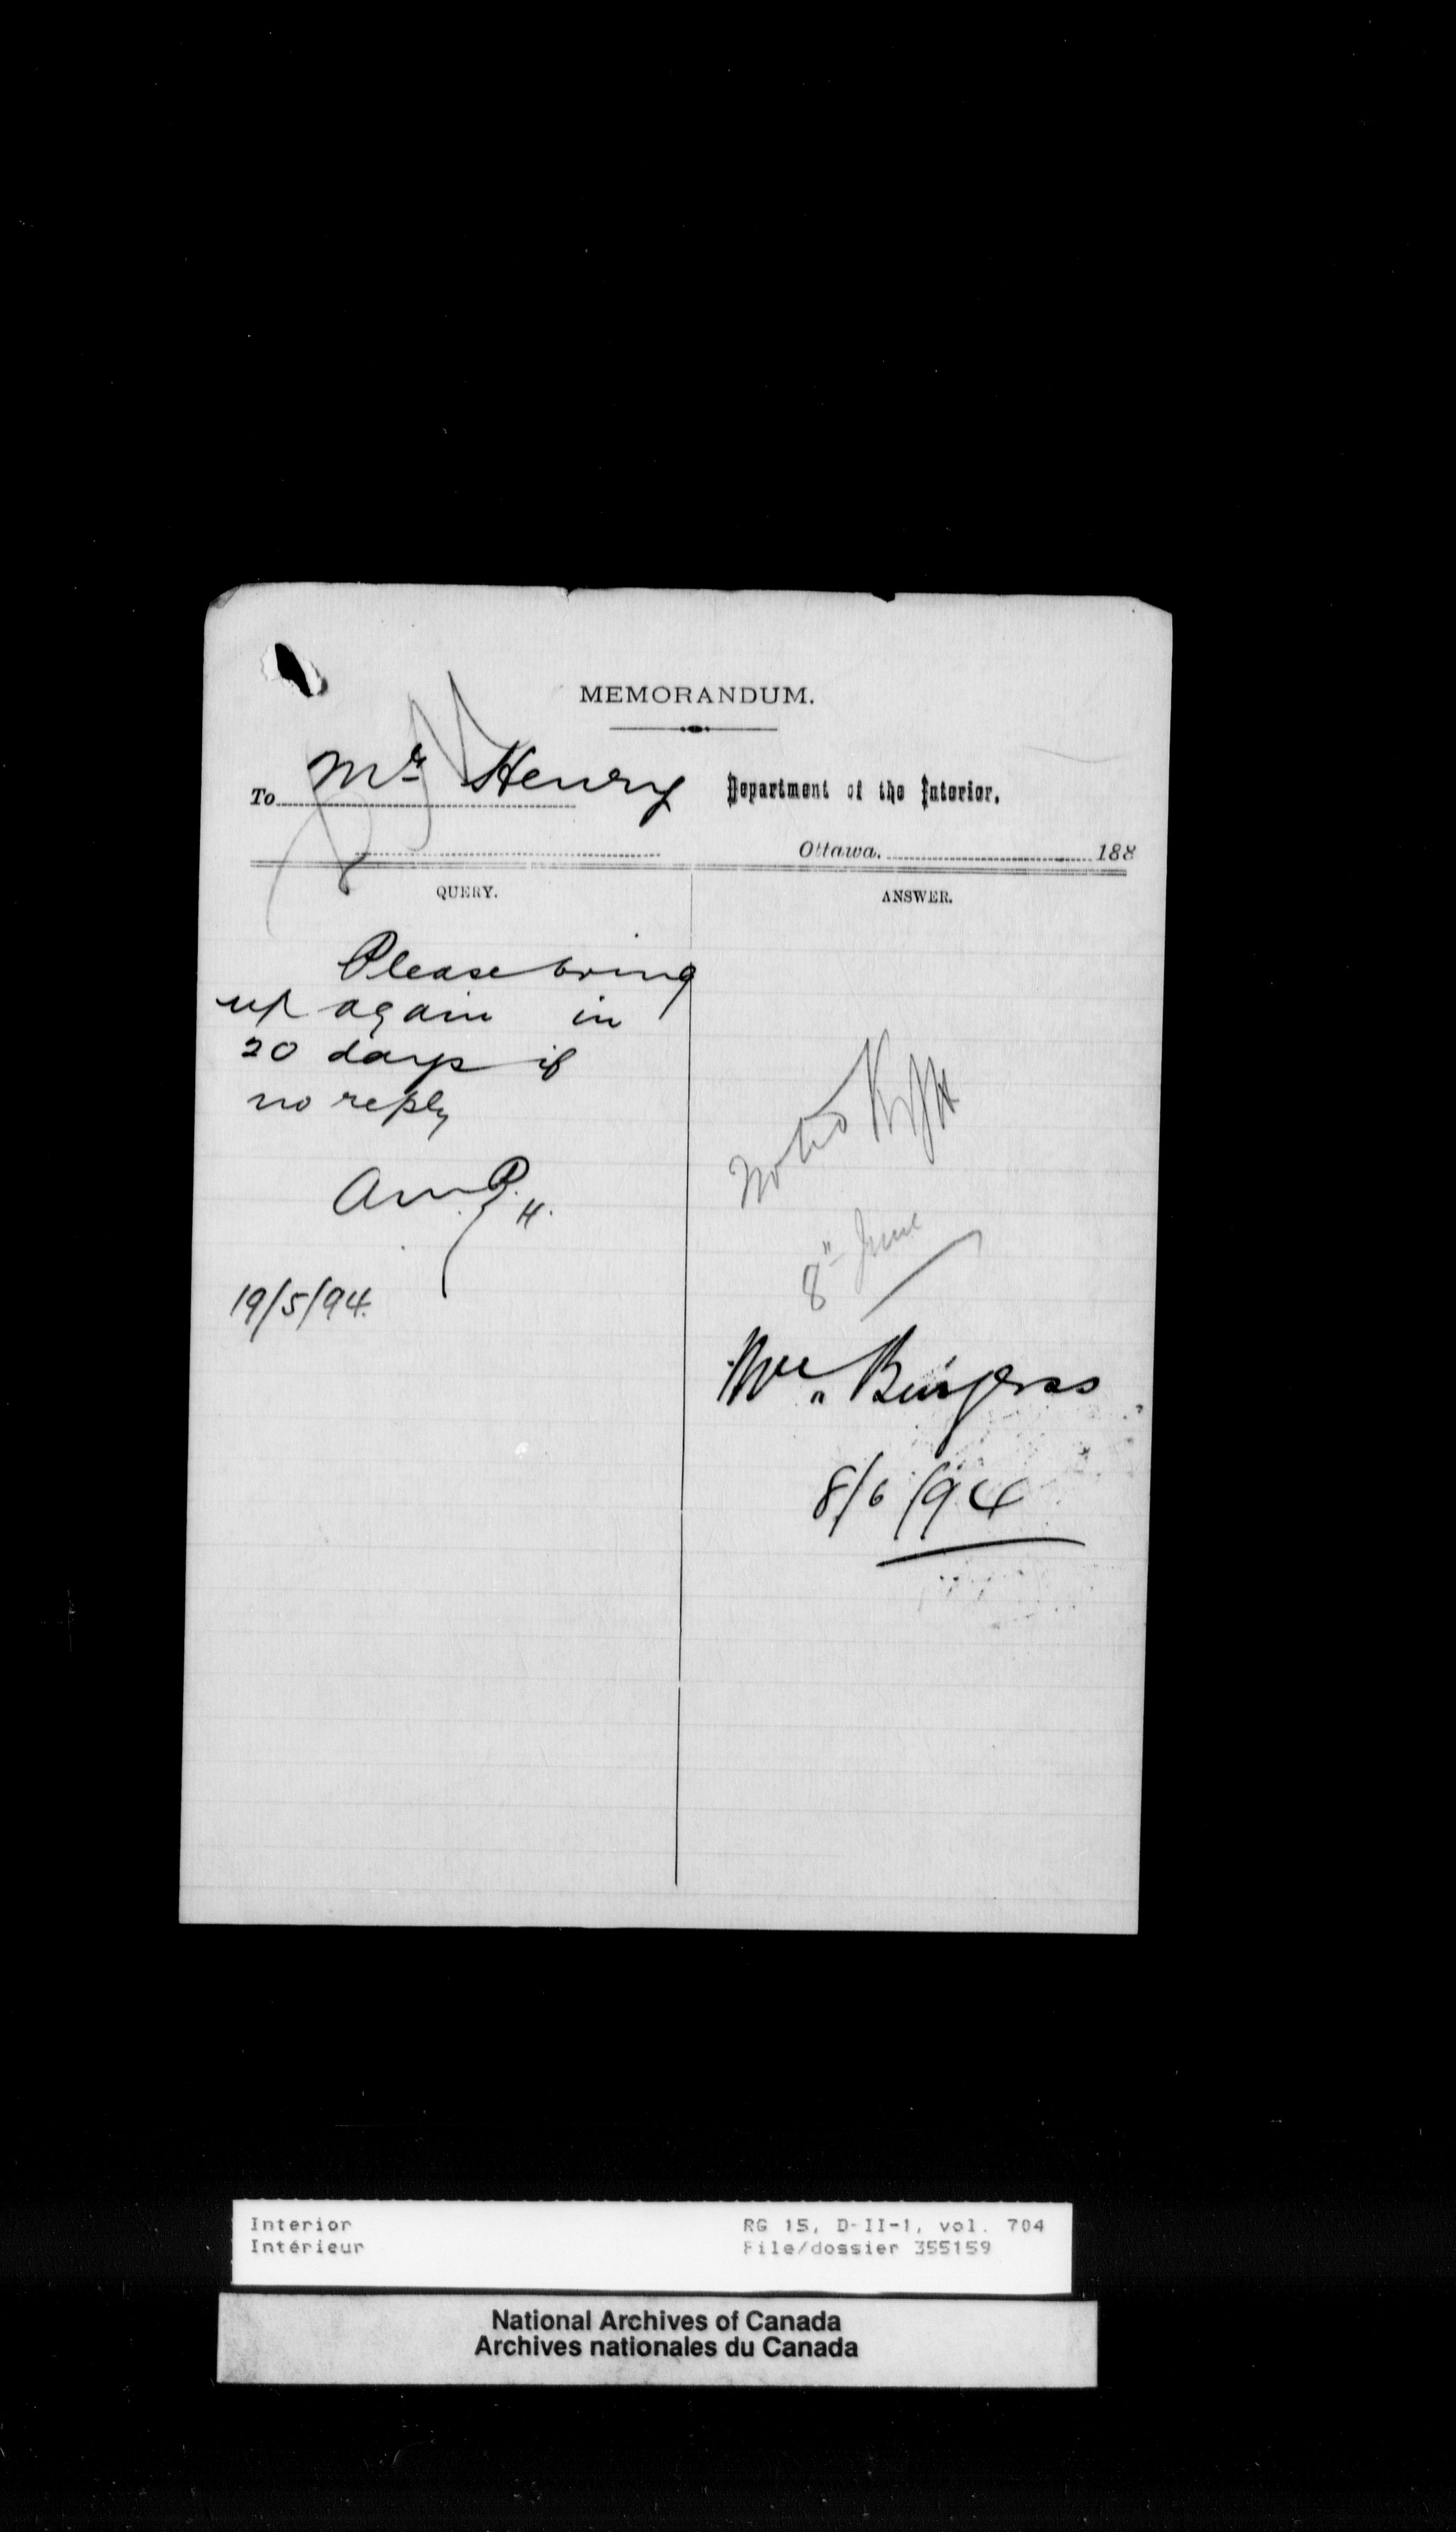 MEMORANDUM.
To Mr Henry
Department of the Interior.
Ottawa. 188
QUERY.
Please bring
up again in
20 days if
no reply
H.
19/5/94.
ANSWER.
Noted
8" June
Mr Burgess
8/6/94
Interior
Intérieur
RG 15, D-II-1, vol. 704
File/dossier 355159
National Archives of Canada
Archives nationales du Canada